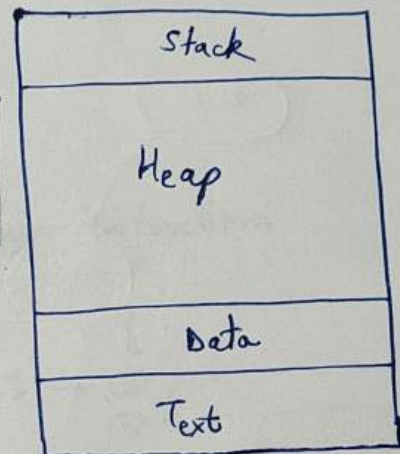 Stack
Heap
Data
Text